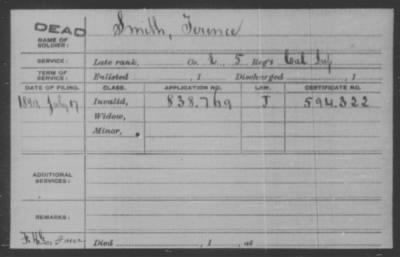 DEAD Smith, Terence
NAME OF SOLDIER:
SERVICE: Late rank, Co. 5 Reg't Cal Inf
TERM OF SERVICE: Enlisted , 1 Discharged , 1
DATE OF FILING. CLASS. APPLICATION NO. LAW. CERTIFICATE NO.
July 17 Invalid, 838.769 J 594.322
Widow,
Minor,
ADDITIONAL SERVICES:
REMARKS:
Died , 1 , at